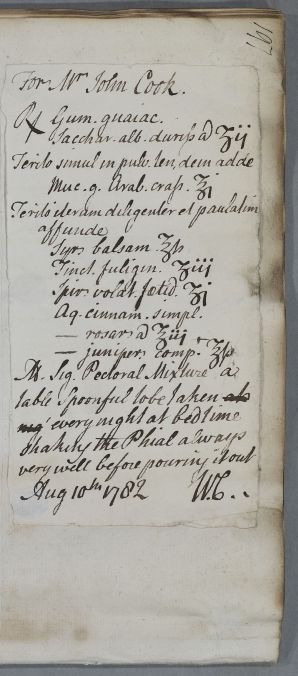 197
For Mr John Cook.
℞ Gum. guaiac.
Sacchar. alb. duriss a ʒij
Terito simul in pulv. ten, dein adde
Muc. g. Arab. crass. ʒj
Terito iterum diligenter et paulatim
affunde
Syr. balsam. ʒss
Tinct. fuligin. ʒiij
Spir. volat. fœtid. ʒj
Aq. cinnam. simpl.
— rosar. a ʒiij
— juniper. comp. ʒss
M. Sig. Pectoral Mixture a
table Spoonful to be taken
every night at bedtime
shaking the Phial always
very well before pouring it out
Aug 10th 1782 W.C..